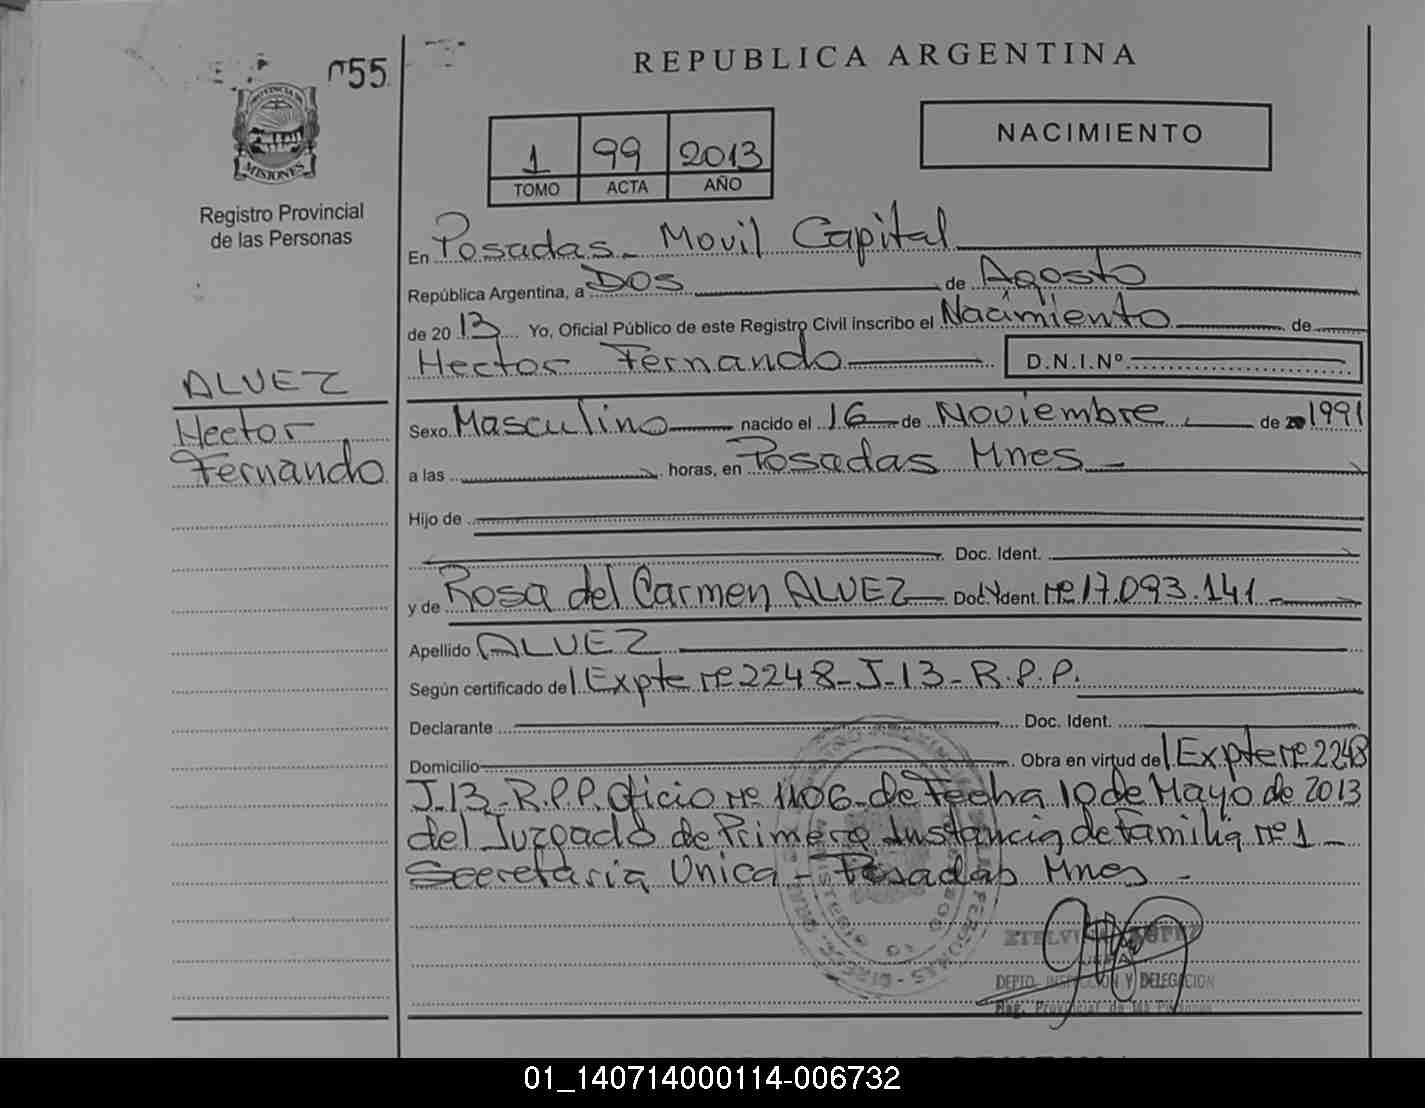 055
REPUBLICA ARGENTINA
PROVINCIA DE
MISIONES
1 99 2013
TOMO ACTA AÑO
NACIMIENTO
Registro Provincial
de las Personas
En Posadas - Movil Capital
República Argentina, a Dos de Agosto
de 2013 Yo, Oficial Público de este Registro Civil inscribo el Nacimiento de
Hector Fernando D.N.I.Nº
ALVEZ
Hector
Fernando
Sexo Masculino nacido el 16 de Noviembre de 1991
a las horas, en Posadas Mnes -
Hijo de
Doc. Ident.
y de Rosa del Carmen ALVEZ Doc. Ident. Nº 17.093.141 -
Apellido ALVEZ
Según certificado de Expte Nº 2248-J-13-R.P.P.
Declarante Doc. Ident.
Domicilio Obra en virtud de Expte Nº 2248
J-13-R.P.P. Oficio Nº 1106 de Fecha 10 de Mayo de 2013
del Juzgado de Primera Instancia de Familia Nº 1 -
Secretaria Unica - Posadas Mnes -
DEPTO. INSPECCION Y DELEGACION
Reg. Provincial de las Personas
01_140714000114-006732